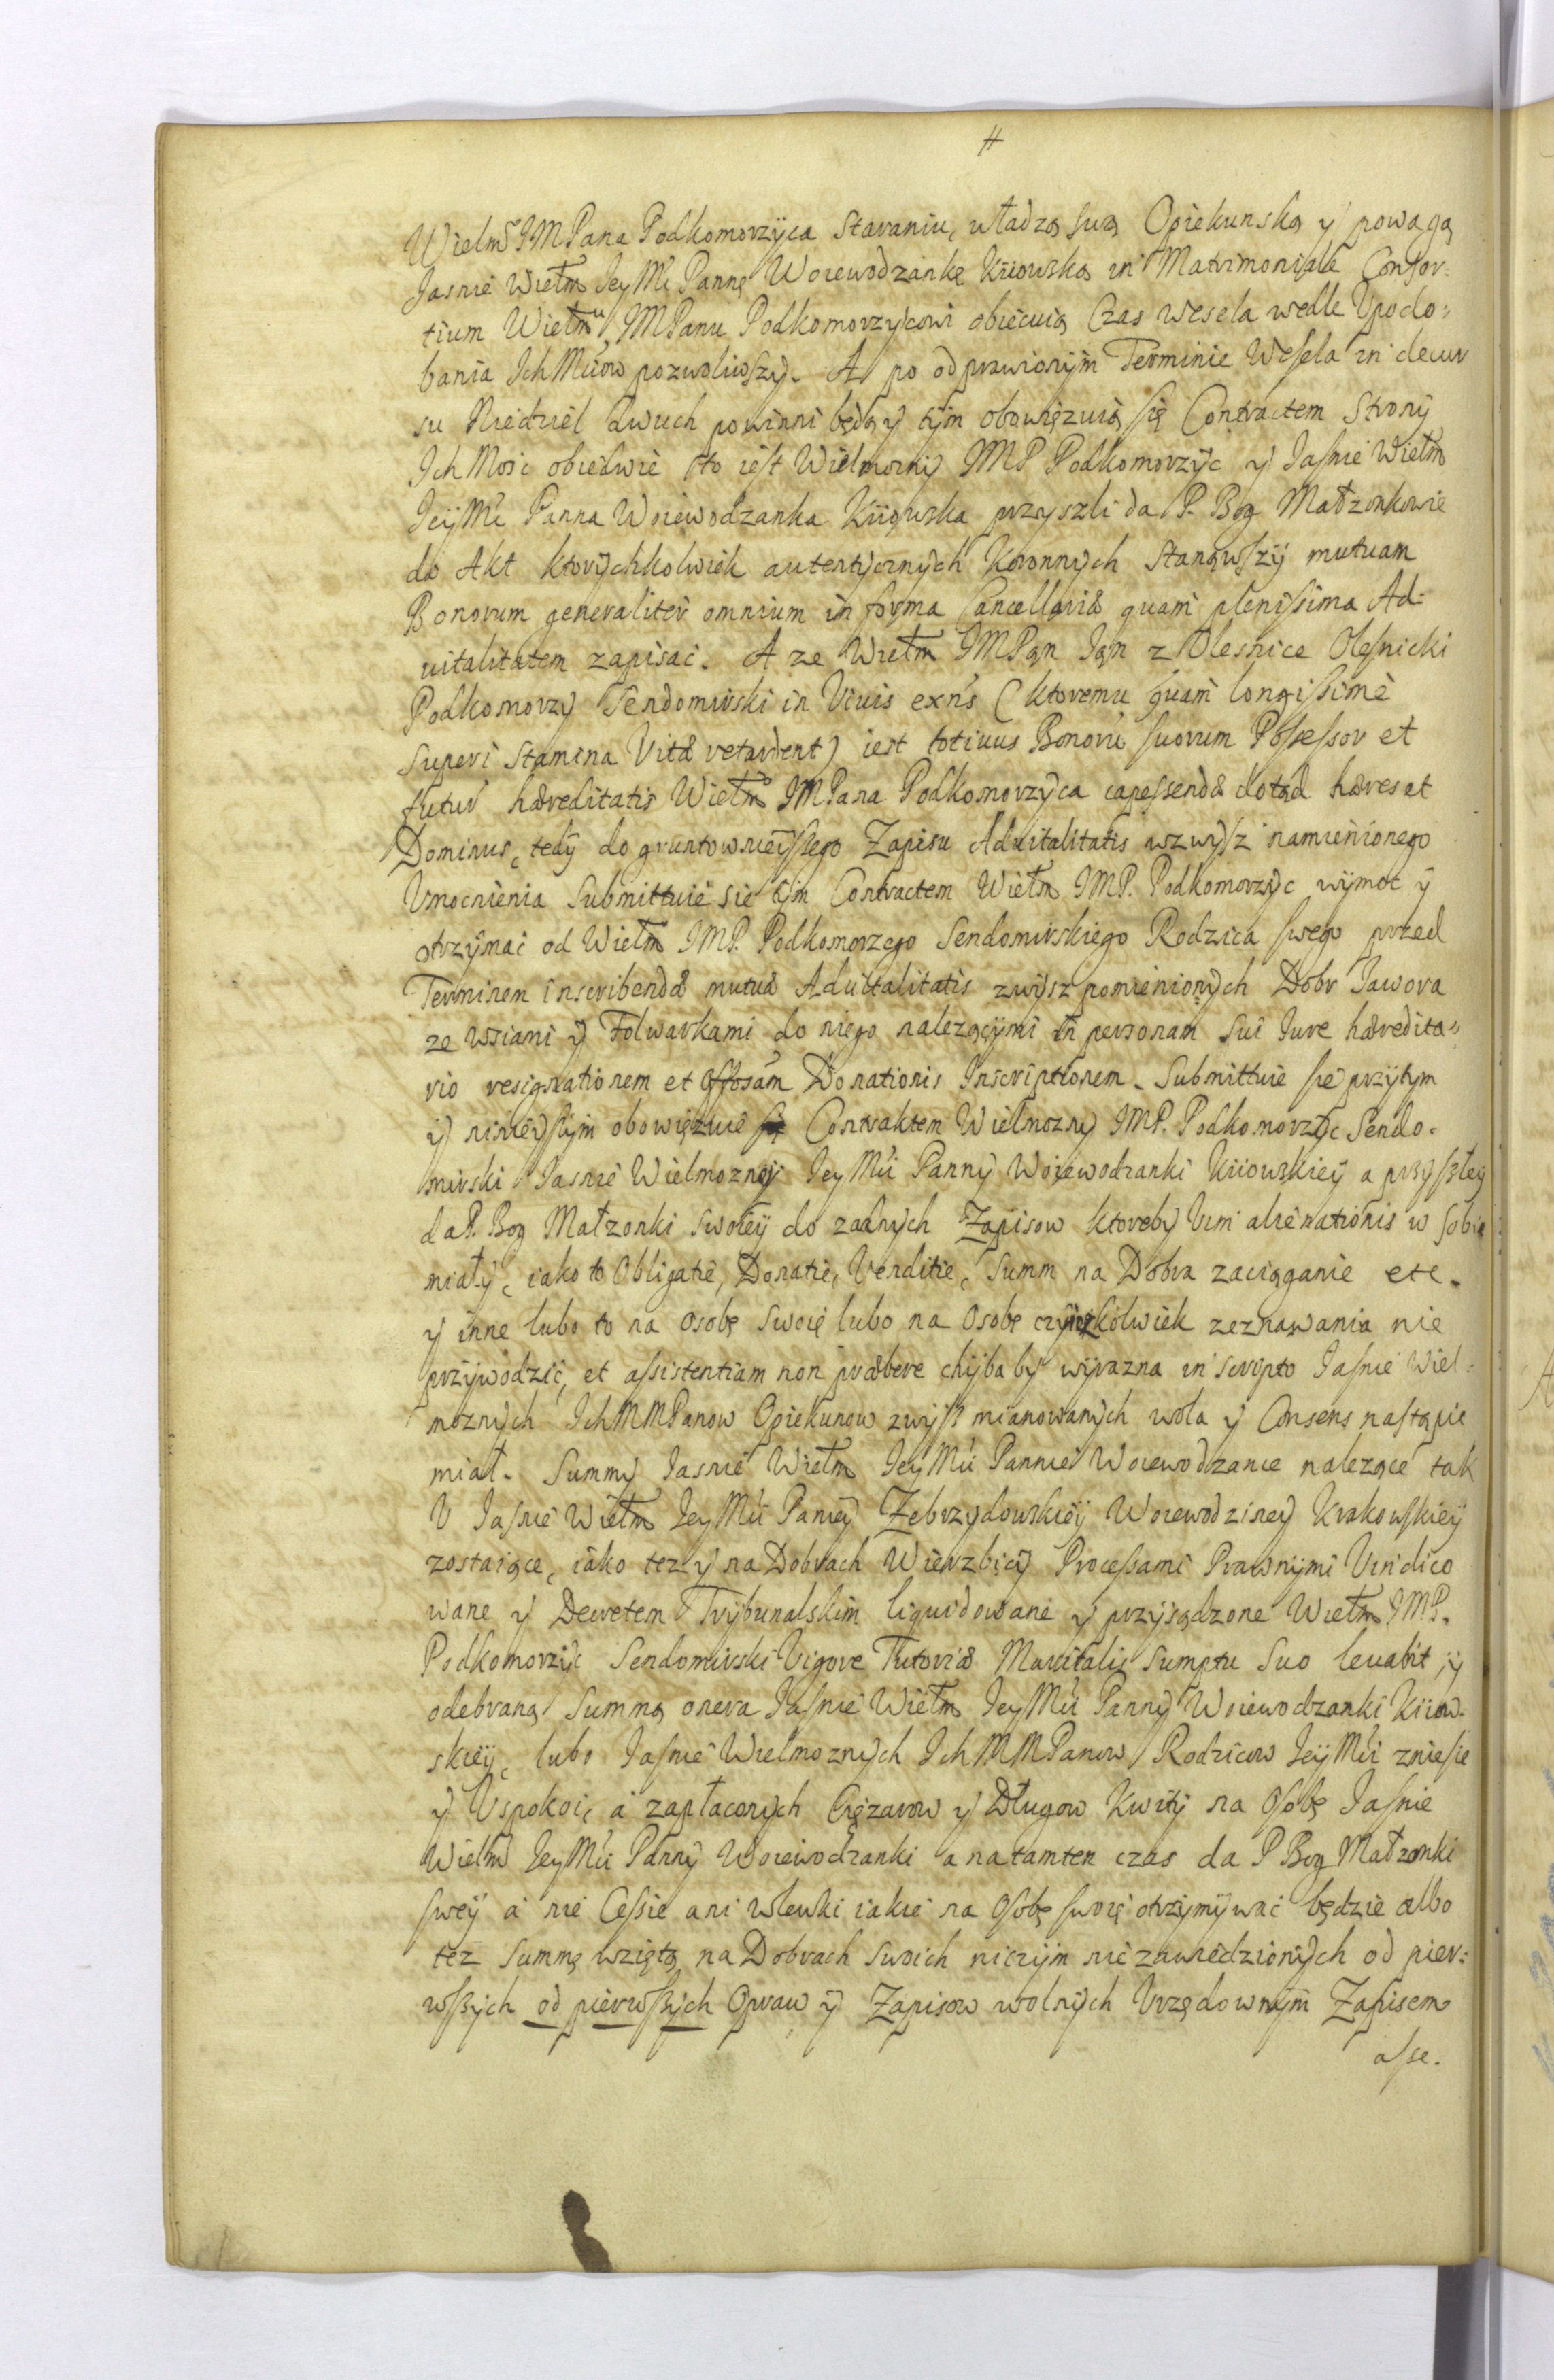 #
Wielmo IMPana Podkomorzyca Staraniu, władzą swą Opiekunską y powagą
Jasnie Wielm JeyMć Pannę Woiewodzankę Kiiowską in Matrimoniale Consor:
tium Wielmu IMPanu Podkomorzycowi obiecuią Czas Wesela wedle Upodo:
bania IchMciow pozwoliwszy. A po odprawionym Terminie Wesela in decur
su Niedziel dwuch powinni będą y tym obowięzuią się Contractem Strony
IchMosc obiedwie to iest Wielmozny IMP Podkomorzyc y Jasnie Wielm
JeyMć Panna Woiewodzanka Kiiowska przyszli da P. Bog Małzonkowie
do Akt ktorychkolwiek autentycznych Koronnych Stanąwszy mutuam
Bonorum generaliter omnium in forma Cancellariæ quam plenissima Ad:
vitalitatem zapisać. A ze Wielm IMPan Jan z Olesnice Olesnicki
Podkomorzy Sendomirski in Vivis exns (ktoremu quam longissime
Superi Stamina Vitæ retardent) iest totius Bonoru suorum Possessor et
futur hæreditatis Wielmo IMPana Podkomorzyca capessendæ dotąd hæres et
Dominus, tedy do gruntownieyszego Zapisu Advitalitatis wzwysz namienionego
Umocnienia Submittuie sie tym Contractem Wielm IMP. Podkomorzyc wymoc y
otrzymac od Wielm IMP. Podkomorzego Sendomirskiego Rodzica swego przed
Terminem inscribendæ mutuæ Advitalitatis zwysz pomienionych Dobr Jawora
ze wsiami y Folwarkami do niego nalezącymi in personam sui Jure hæredita:
rio resignationem et Donationis Inscriptionem. Submittuie sie przytym
y ninieyszym obowięzuie się Contraktem Wielmozny IMP. Podkomorzyc Sendo.
mirski Jasnie Wielmozney JeyMći Panny Woiewodzanki Kiiowskiey a przyszłey
da P. Bog Małzonki swoiey do zadnych Zapisow ktoreby Vim alienationis w sobie
miały, iako to Obligatie, Donatie, Venditie, Summ na Dobra zaciąganie etc.
y inne lubo to na Osobę swoię lubo na Osobę czyiezkolwiek zeznawania nie
przywodzić, et assistentiam non præbere chybaby wyrazna in scripto Jasnie Wiel:
moznych IchMMPanow Opiekunow zwysz mianowanych wola y Consens nastąpić
miał. Summy Jasnie Wielm JeyMći Pannie Woiewodzance nalezące tak
U Jasnie Wielm JeyMći Paniey Zebrzydowskiey Woiewodziney Krakowskiey
zostaiące, iako tez y na Dobrach Wierzbicy Processami Prawnymi Vindico
wane y Decretem Trybunalskim liquidowane y przysądzone Wielm IMP.
Podkomorzyc Sendomirski Vigore Tutoriæ Maritalis Sumptu Suo levabit, y
odebraną Summą onera Jasnie Wielm JeyMći Panny Woiewodzanki Kiiow.
skiey, lubo Jasnie Wielmoznych IchMMPanow Rodzicow JeyMći zniesie
y Uspokoi, a zapłaconych Cięzarow y Długow Kwity na Osobę Jasnie
Wielm JeyMći Panny Woiewodzanki a natamten czas da P Bog Małzonki
swey a nie Cessie ani wlewki iakie na Osobę swoię otrzymywac będzie albo
tez Summę wziętą na Dobrach swoich niczym nie zawiedzionych od pier:
wszych od pierwszych Opraw y Zapisow wolnych Urzędownym Zapisem
asse.